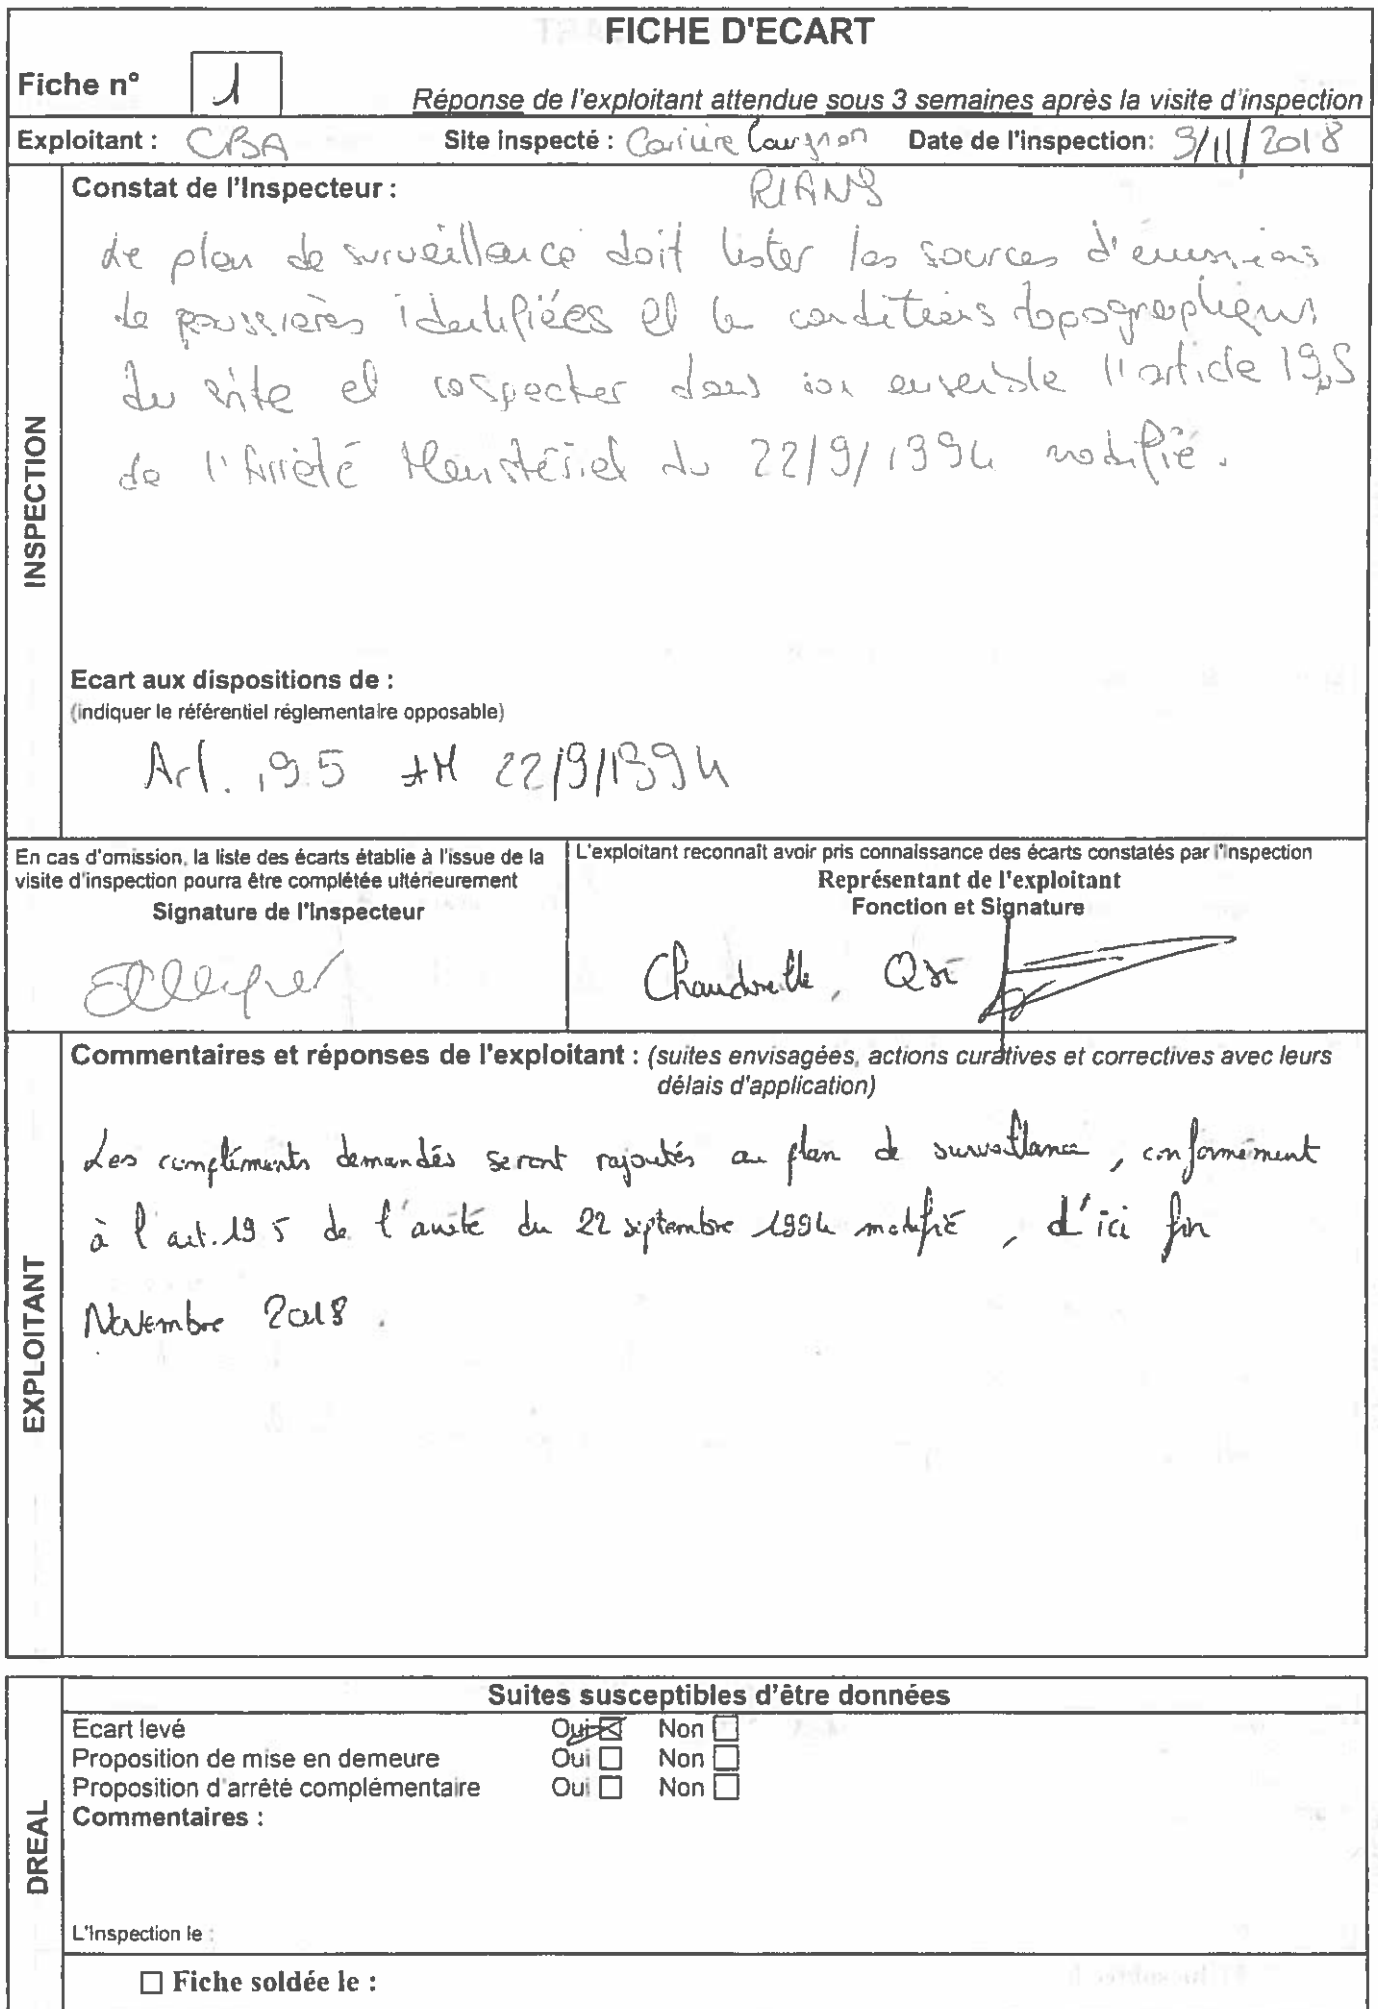 FICHE D'ECART
Fiche n° 1
Réponse de l'exploitant attendue sous 3 semaines après la visite d'inspection
Exploitant : CBA Site inspecté : Carrière Date de l'inspection: 9/11/2018
RIANS
INSPECTION
Constat de l'Inspecteur :
Le plan de surveillance doit lister les sources d'emissions
de poussières identifiées et les conditions topographiques
du site et respecter dans son ensemble l'article 19.5
de l'Arrêté Ministériel du 22/9/1994 modifié.
Ecart aux dispositions de :
(indiquer le référentiel réglementaire opposable)
Art. 19.5 AM 22/9/1994
En cas d'omission, la liste des écarts établie à l'issue de la
visite d'inspection pourra être complétée ultérieurement
Signature de l'Inspecteur
L'exploitant reconnaît avoir pris connaissance des écarts constatés par l'Inspection
Représentant de l'exploitant
Fonction et Signature
EXPLOITANT
Commentaires et réponses de l'exploitant : (suites envisagées, actions curatives et correctives avec leurs
délais d'application)
Les compléments demandés seront rajoutés au plan de surveillance, conformément
à l'art. 19 5 de l'arrêté du 22 septembre 1994 modifié, d'ici fin
Novembre 2018.
DREAL
Suites susceptibles d'être données
Ecart levé Oui ☒ Non ☐
Proposition de mise en demeure Oui ☐ Non ☐
Proposition d'arrêté complémentaire Oui ☐ Non ☐
Commentaires :
L'Inspection le :
☐ Fiche soldée le :